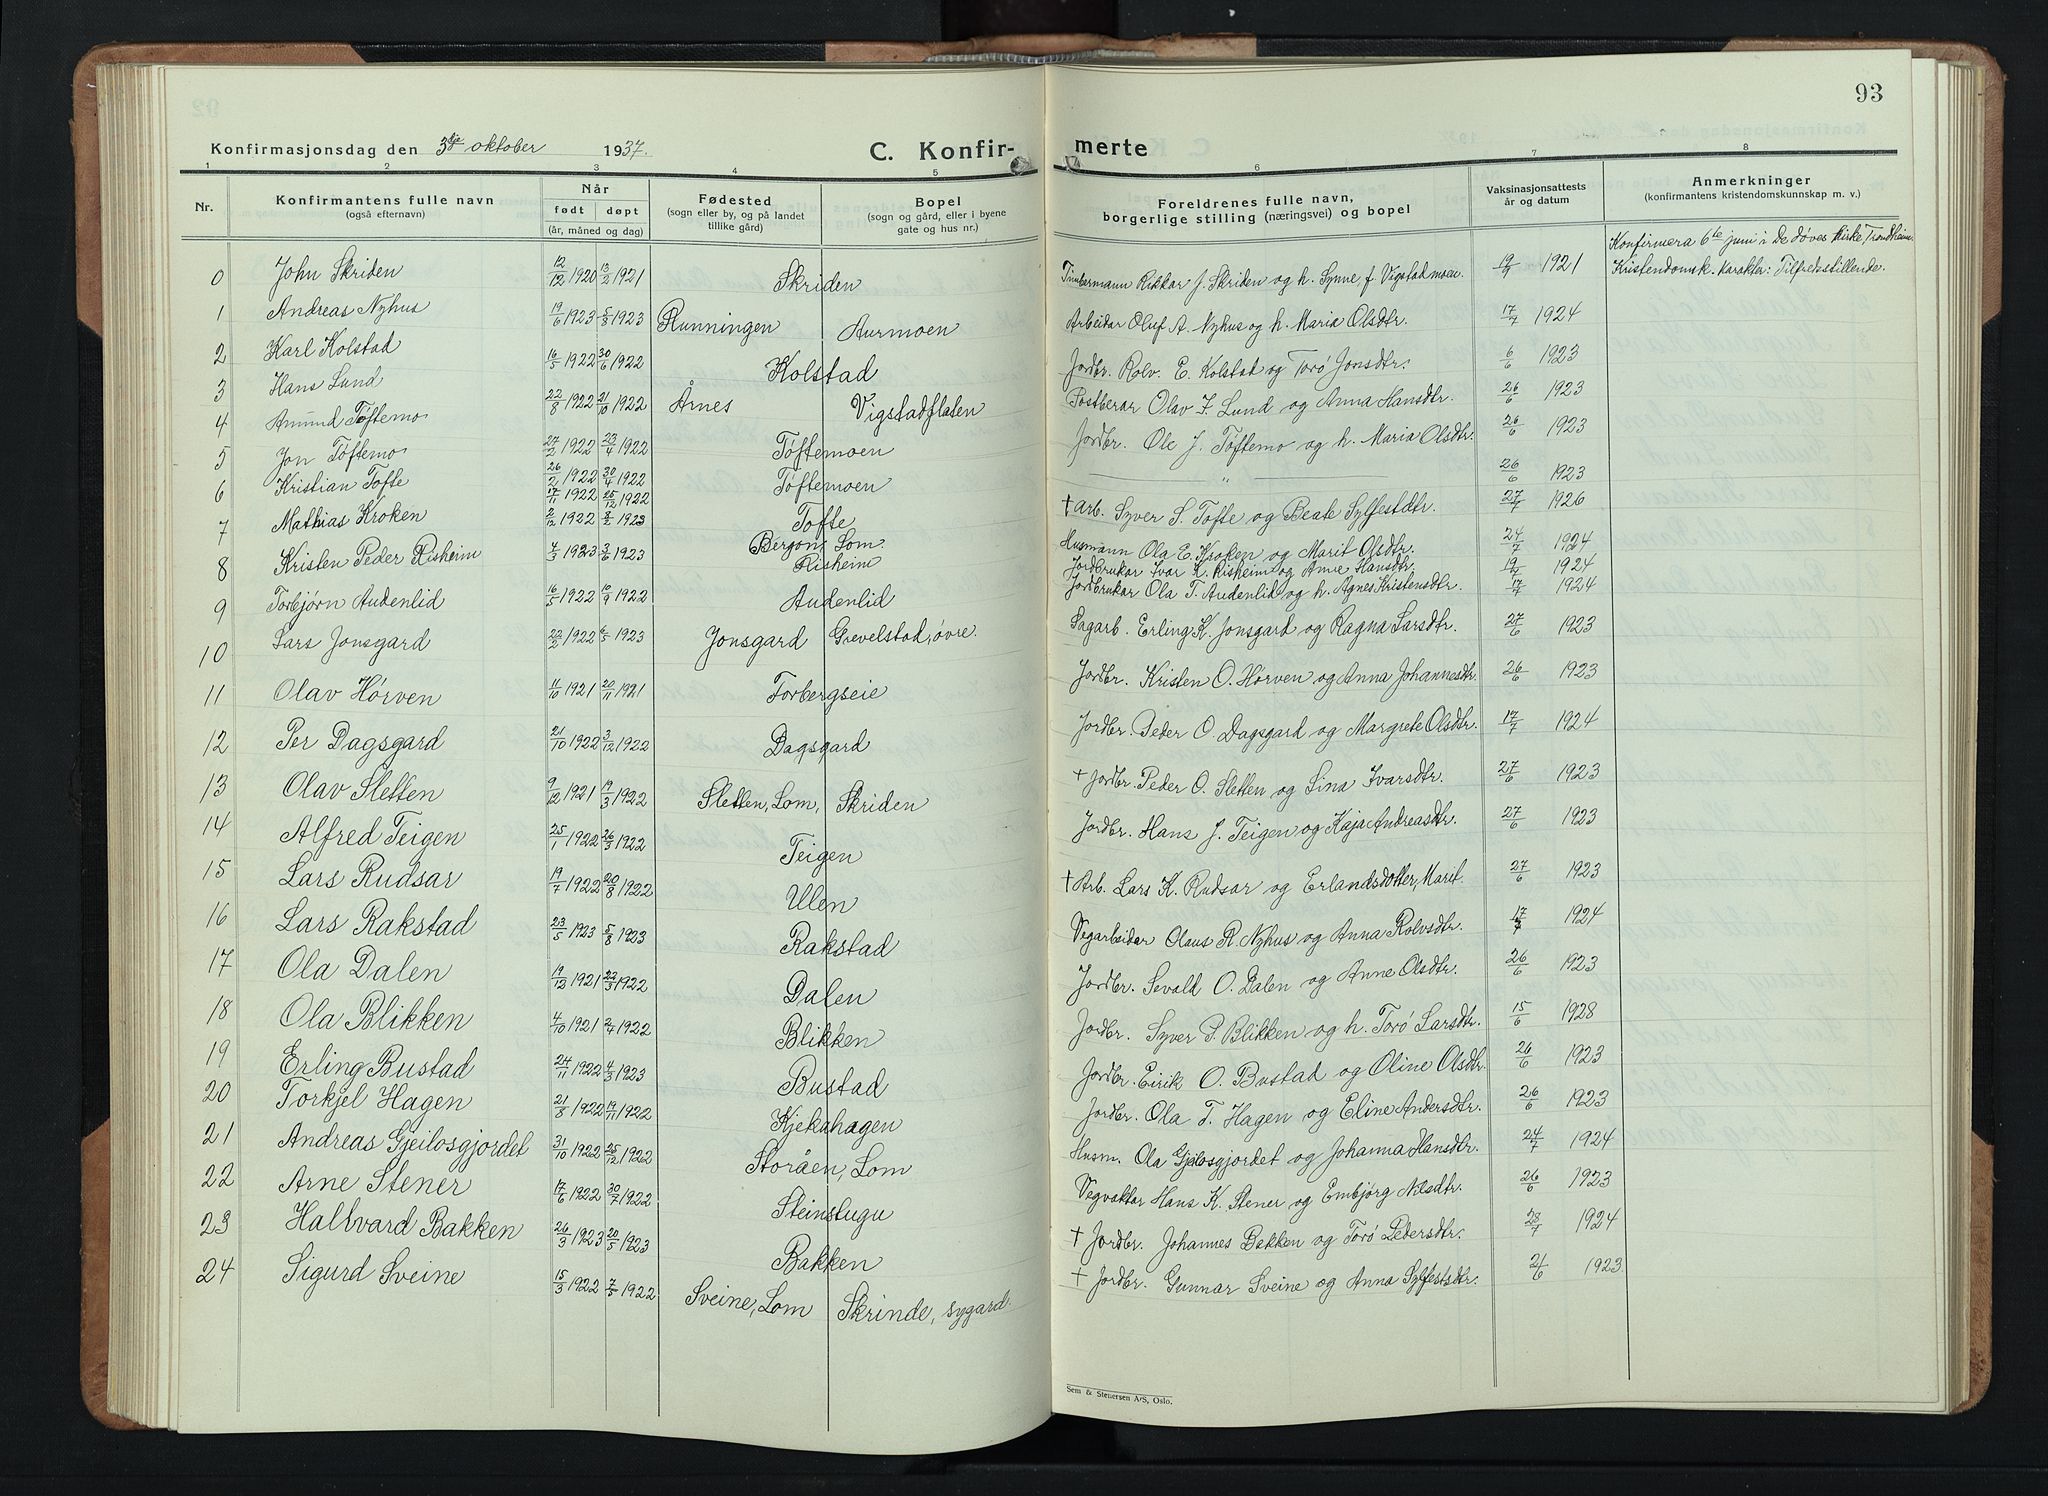 93
Konfirmasjonsdag den 3dje oktober 1937. C. Konfir- merte
1 2 3 4 5 6 7 8
Nr. Konfirmantens fulle navn (også efternavn) Når født døpt (år, måned og dag) Fødested (sogn eller by, og på landet tillike gård) Bopel (sogn og gård, eller i byene gate og hus nr.) Foreldrenes fulle navn, borgerlige stilling (næringsvei) og bopel Vaksinasjonsattests år og datum Anmerkninger (konfirmantens kristendomskunnskap m. v.)
0 John Skriden 12/12 1920 13/2 1921 Skriden Timbermann Rikkar J. Skriden og h. Synne f. Vigstadmoen. 19/9 1921 Konfirmera 6te juni i De døves kirke Trondheim. Kristendomsk. karakter: Tilfredsstillende.
1 Andreas Nyhus 19/6 1923 5/8 1923 Runningen Aurmoen Arbeidar Oluf A. Nyhus og h. Maria Olsdtr. 17/7 1924
2 Karl Kolstad 16/5 1922 30/6 1922 Kolstad Jordbr. Rolv. E. Kolstad og Torø Jonsdtr. 6/6 1923
3 Hans Lund 22/8 1922 21/10 1922 Årnes Vigstadflaten Postberar Olav F. Lund og Anna Hansdtr. 26/6 1923
4 Amund Tøftemo 27/2 1922 23/4 1922 Tøftemoen Jordbr. Ole J. Tøftemo og h. Maria Olsdtr. 26/6 1923
5 Jon Tøftemo 26/2 1922 30/4 1922 Tøftemoen " 26/6 1923
6 Kristian Tofte 17/11 1922 25/12 1922 Tofte † Arb. Syver S. Tofte og Beate Sylfestdtr. 27/7 1926
7 Mathias Kroken 2/12 1922 8/2 1923 Bergom, Lom. Husmann Ola E. Kroken og Marit Olsdtr. 24/7 1924
8 Kristen Peder Risheim 4/3 1923 3/6 1923 Risheim Jordbrukar Ivar K. Risheim og Anne Hansdtr. 19/7 1924
9 Torbjørn Audenlid 16/5 1922 10/9 1922 Audenlid Jordbrukar Ola T. Audenlid og h. Agnes Kristensdtr. 17/7 1924
10 Lars Jonsgard 22/2 1922 6/5 1923 Jonsgard Grevelstad, øvre. Sagarb. Erling K. Jonsgard og Ragna Larsdtr. 27/6 1923
11 Olav Hørven 11/10 1921 20/11 1921 Forbergseie Jordbr. Kristen O. Hørven og Anna Johannesdtr. 26/6 1923
12 Per Dagsgard 21/10 1922 3/12 1922 Dagsgard Jordbr. Peder O. Dagsgard og Margrete Olsdtr. 17/7 1924
13 Olav Sletten 9/12 1921 19/3 1922 Sletten, Lom, Skriden † Jordbr. Peder O. Sletten og Sina Ivarsdtr. 27/6 1923
14 Alfred Teigen 25/1 1922 26/3 1922 Teigen Jordbr. Hans J. Teigen og Kaja Andreasdtr. 27/6 1923
15 Lars Rudsar 19/7 1922 20/8 1922 Ulen † Arb. Lars K. Rudsar og Erlandsdotter, Marit. 27/6 1923
16 Lars Rakstad 23/5 1923 5/8 1923 Rakstad Vegarbeidar Olaus R. Nyhus og Anna Rolvsdtr. 17/7 1924
17 Ola Dalen 19/12 1921 22/3 1922 Dalen Jordbr. Sevald O. Dalen og Anne Olsdtr. 26/6 1923
18 Ola Blikken 4/10 1921 2/4 1922 Blikken Jordbr. Syver P. Blikken og h. Torø Larsdtr. 15/6 1928
19 Erling Bustad 24/11 1922 4/3 1923 Bustad Jordbr. Eirik O. Bustad og Oline Olsdtr. 26/6 1923
20 Torkjel Hagen 21/8 1922 19/11 1922 Kjekahagen Jordbr. Ola T. Hagen og Eline Andersdtr. 26/6 1923
21 Andreas Gjeilosgjordet 31/10 1922 25/12 1922 Storåen, Lom Husm. Ola Gjelosgjordet og Johanna Hansdtr. 24/7 1924
22 Arne Stener 17/6 1922 30/7 1922 Steinstugu Vegvaktar Hans K. Stener og Embjørg Nilsdtr. 26/6 1923
23 Hallvard Bakken 26/3 1923 20/5 1923 Bakken † Jordbr. Johannes Bakken og Torø Pedersdtr. 28/7 1924
24 Sigurd Sveine 15/3 1922 7/5 1922 Sveine, Lom Skrinde, sygard. † Jordbr. Gunnar Sveine og Anna Sylfestsdtr. 21/6 1923
Sem & Stenersen A/S, Oslo.